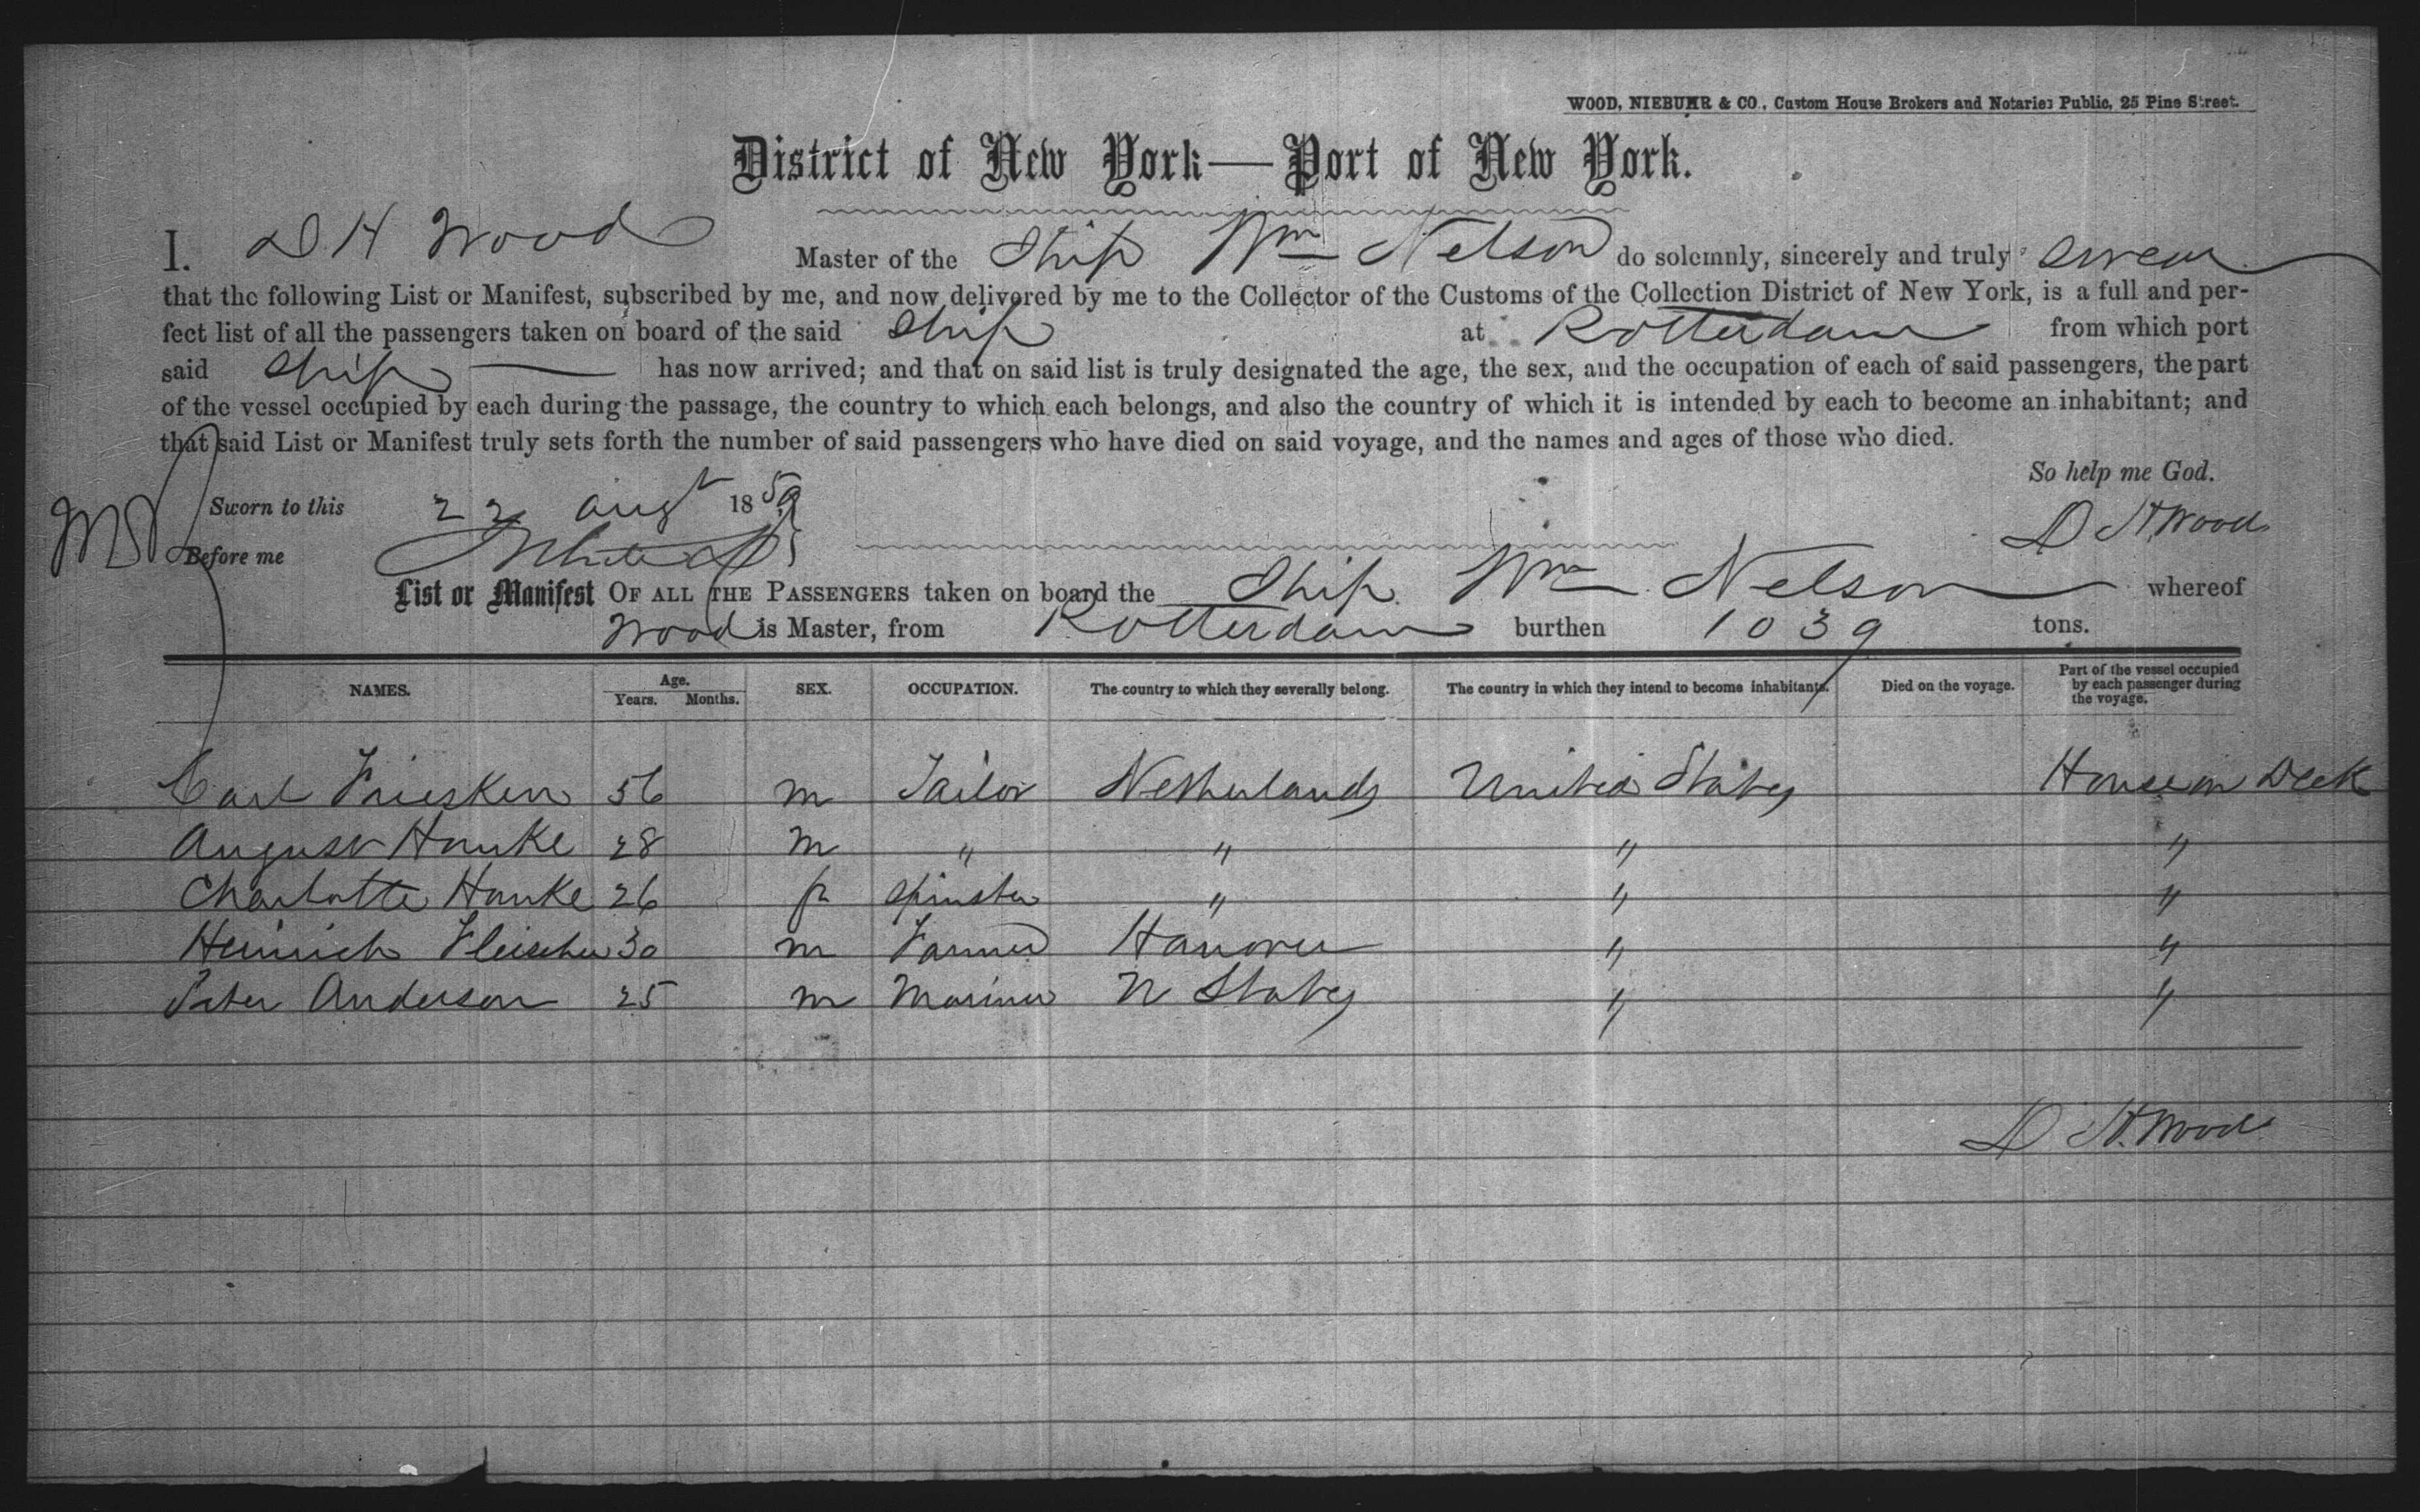 WOOD, NIEBUHR & CO., Custom House Brokers and Notaries Public, 25 Pine Street.
District of New York—Port of New York.
I. D. H Wood Master of the Ship Wm Nelson do solemnly, sincerely and truly swear
that the following List or Manifest, subscribed by me, and now delivered by me to the Collector of the Customs of the Collection District of New York, is a full and per-
fect list of all the passengers taken on board of the said Ship at Rotterdam from which port
said Ship has now arrived; and that on said list is truly designated the age, the sex, and the occupation of each of said passengers, the part
of the vessel occupied by each during the passage, the country to which each belongs, and also the country of which it is intended by each to become an inhabitant; and
that said List or Manifest truly sets forth the number of said passengers who have died on said voyage, and the names and ages of those who died.
So help me God.
Sworn to this 22 augt 1859
D. H. Wood
Before me
List or Manifest OF ALL THE PASSENGERS taken on board the Ship Wm Nelson whereof
Wood is Master, from Rotterdam burthen 1039 tons.
NAMES. Age. Years. Months. SEX. OCCUPATION. The country to which they severally belong. The country in which they intend to become inhabitants. Died on the voyage. Part of the vessel occupied by each passenger during the voyage.
Carl Friesken 56 m Tailor Netherlands United States House on Deck
August Hanke 28 m " " " "
Charlotte Hanke 26 f spinster " " "
Heinrich Fleischer 30 m Farmer Hanover " "
Peter Anderson 25 m Mariner U States " "
D. H. Wood